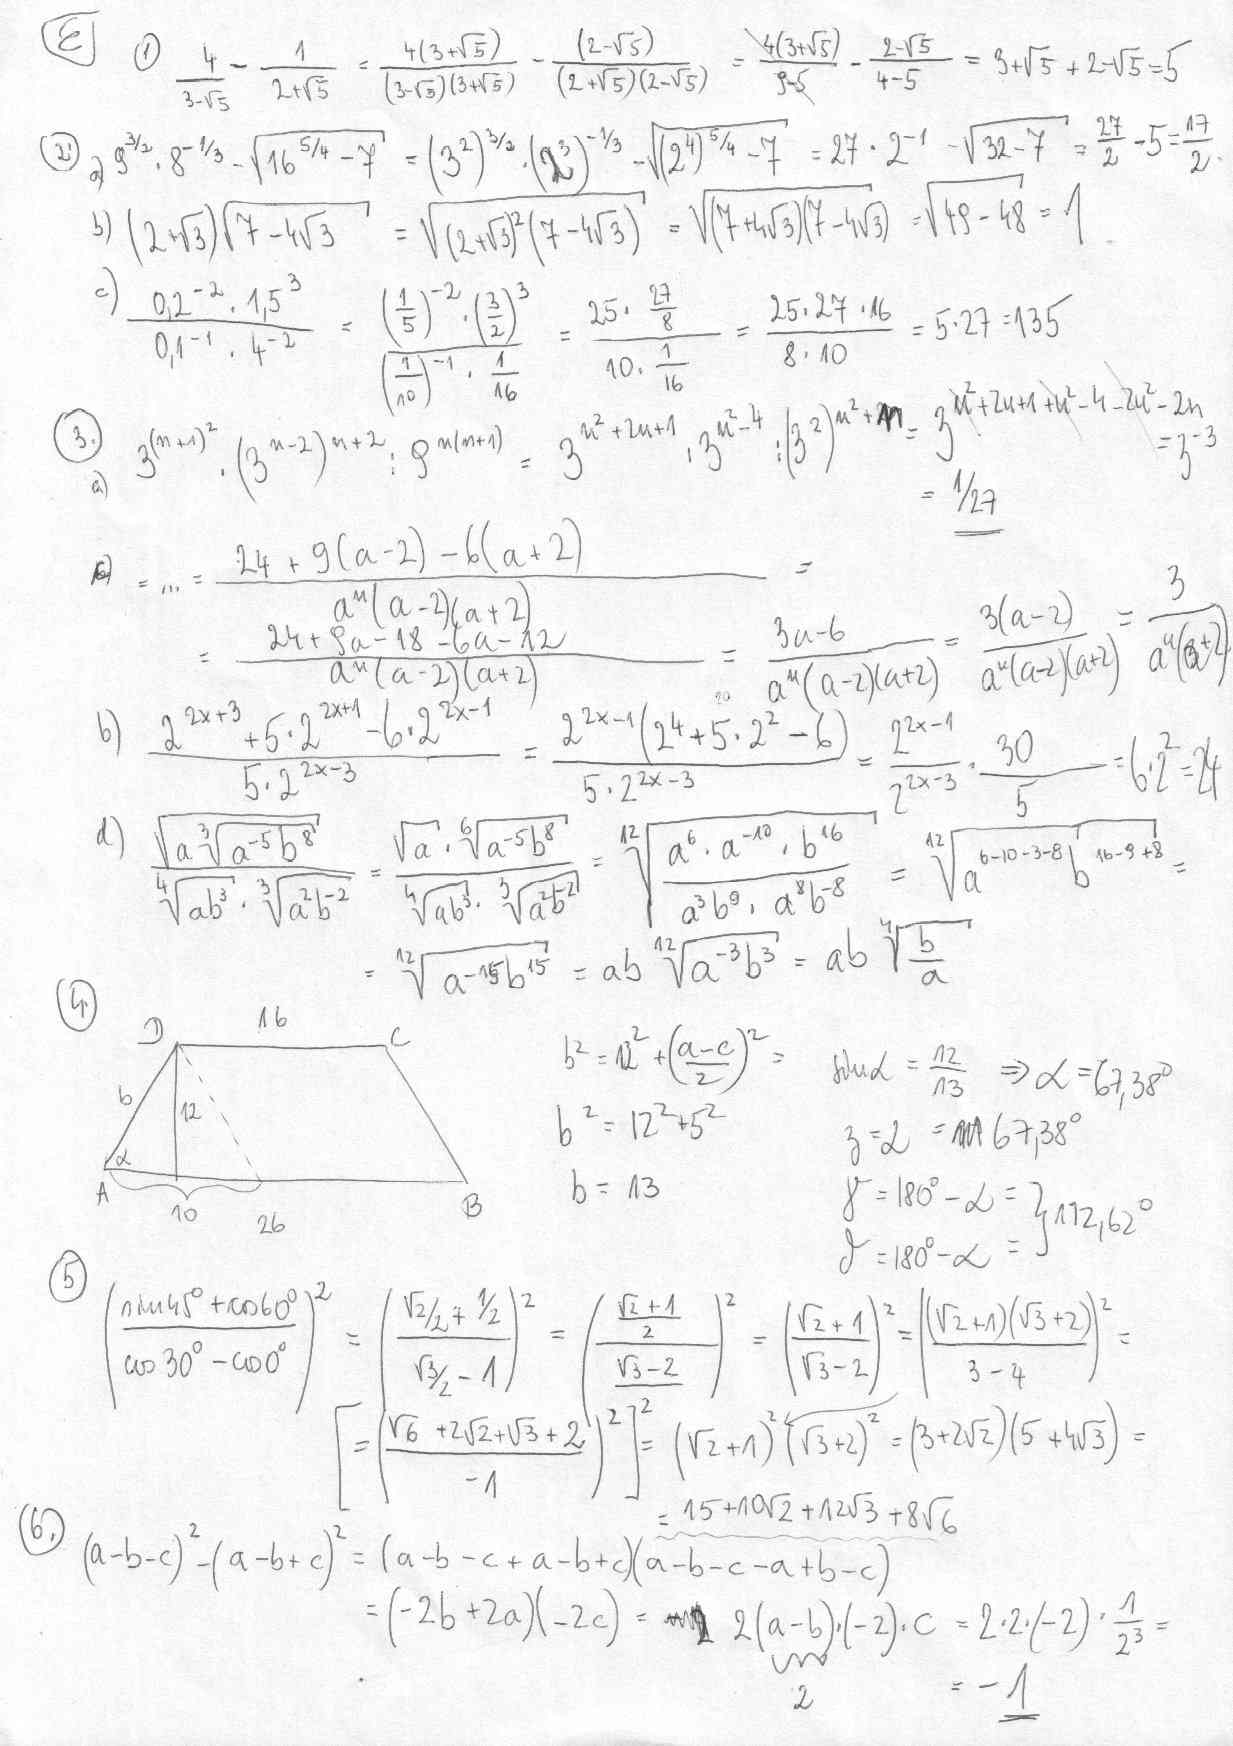 E
1) 4/(3-√5) - 1/(2+√5) = 4(3+√5)/((3-√5)(3+√5)) - (2-√5)/((2+√5)(2-√5)) = 4(3+√5)/(9-5) - (2-√5)/(4-5) = 3+√5+2-√5=5
2. a) 9^(3/2) · 8^(-1/3) - √(16^(5/4) - 7) = (3²)^(3/2) · (2³)^(-1/3) - √((2⁴)^(5/4) - 7) = 27 · 2^(-1) - √(32-7) = 27/2 - 5 = 17/2.
b) (2+√3)√(7-4√3) = √((2+√3)²(7-4√3)) = √((7+4√3)(7-4√3)) = √(49-48) = 1
c) (0,2^(-2) · 1,5³)/(0,1^(-1) · 4^(-2)) = ((1/5)^(-2) · (3/2)³)/((1/10)^(-1) · 1/16) = (25 · 27/8)/(10 · 1/16) = (25·27·16)/(8·10) = 5·27=135
3. a) 3^((n+1)²) · (3^(n-2))^(n+2) : 9^(n(n+1)) = 3^(n²+2n+1) · 3^(n²-4) : (3²)^(n²+n) = 3^(n²+2n+1+n²-4-2n²-2n) = 3^(-3)
= 1/27
c) = ... = (24 + 9(a-2) - 6(a+2))/(aⁿ(a-2)(a+2)) =
= (24+9a-18-6a-12)/(aⁿ(a-2)(a+2)) = (3a-6)/(aⁿ(a-2)(a+2)) = 3(a-2)/(aⁿ(a-2)(a+2)) = 3/(aⁿ(a+2))
b) (2^(2x+3) + 5·2^(2x+1) - 6·2^(2x-1))/(5·2^(2x-3)) = (2^(2x-1)(2⁴+5·2²-6))/(5·2^(2x-3)) = 2^(2x-1)/2^(2x-3) · 30/5 = 6·2²=24
20
d) √(a ∛(a^(-5)b⁸))/(∜(ab³) · ∛(a²b^(-2))) = (√a · ⁶√(a^(-5)b⁸))/(∜(ab³) · ∛(a²b^(-2))) = ¹²√((a⁶·a^(-10)·b^16)/(a³b⁹·a⁸b^(-8))) = ¹²√(a^(6-10-3-8) b^(16-9+8)) =
= ¹²√(a^(-15)b^15) = ab ¹²√(a^(-3)b³) = ab ∜(b/a)
4.
D 16 C
b 12
α
A 10 26 B
b² = 12² + ((a-c)/2)² =
b² = 12²+5²
b = 13
sinα = 12/13 ⇒ α = 67,38°
β = α = 67,38°
γ = 180° - α =
δ = 180° - α = } 112,62°
5 ((sin45°+cos60°)/(cos30°-cos0°))² = ((√2/2 + 1/2)/(√3/2 - 1))² = (((√2+1)/2)/(√3-2))² = ((√2+1)/(√3-2))² = (((√2+1)(√3+2))/(3-4))² =
[= ((√6+2√2+√3+2)/(-1))²]² = (√2+1)²(√3+2)² = (3+2√2)(5+4√3) =
= 15+10√2+12√3+8√6
6. (a-b-c)² - (a-b+c)² = (a-b-c+a-b+c)(a-b-c-a+b-c)
= (-2b+2a)(-2c) = 2(a-b)·(-2)·c = 2·2·(-2) · 1/2³ =
2
= -1